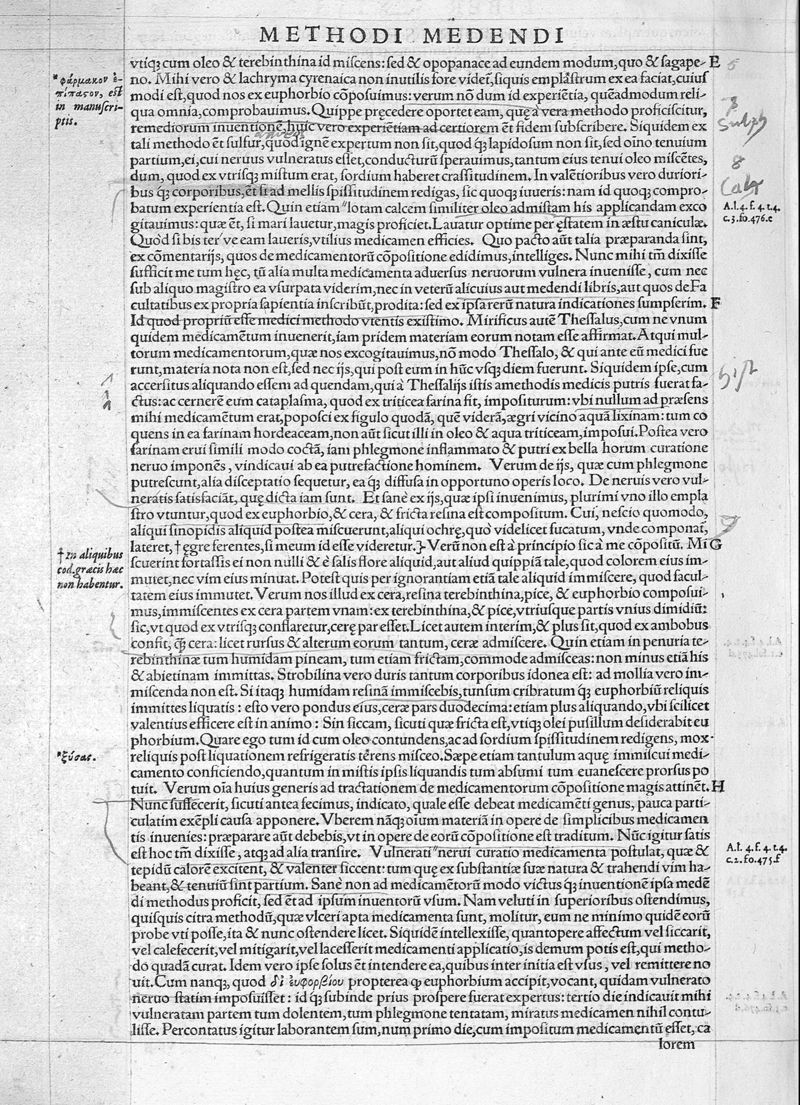 METHODI MEDENDI
vtiq; cum oleo & terebinthina id miscens: sed & opopanace ad eundem modum, quo & sagape- E
no. Mihi vero & lachryma cyrenaica non inutilis fore videt̃, siquis emplãstrum ex ea faciat, cuius
modi est, quod nos ex euphorbio cõposuimus: verum nõ dum id experiẽtia, quẽadmodum reli-
qua omnia, comprobauimus. Quippe pręcedere oportet eam, quę a vera methodo proficiscitur,
remediorum inuentionẽ, huic vero experiẽtiam ad certiorem ẽt fidem subscribere. Siquidem ex
tali methodo ẽt sulfur, quod ignẽ expertum non sit, quod q; lapidosum non sit, sed oĩno tenuium
partium, ei, cui neruus vulneratus esset, conducturũ sperauimus, tantum eius tenui oleo miscẽtes,
dum, quod ex vtrisq; mistum erat, sordium haberet crassitudinem. In valẽtioribus vero duriori-
bus q; corporibus, ẽt si ad mellis spissitudinem redigas, sic quoq; iuueris: nam id quoq; compro-
batum experientia est. Quin etiam "lotam calcem similiter oleo admistam his applicandam exco
gitauimus: quæ ẽt, si mari lauetur, magis proficiet. Lauatur optime per ęstatem in æstu caniculæ.
Quòd si bis ter've eam laueris, vtilius medicamen efficies. Quo pacto aũt talia præparanda sint,
ex cõmentarijs, quos de medicamentorũ cõpositione edidimus, intelliges. Nunc mihi tm̃ dixisse
suffĩcit me tum hęc, tũ alia multa medicamenta aduersus neruorum vulnera inuenisse, cum nec
sub aliquo magistro ea vsurpata viderim, nec in veterũ alicuius aut medendi libris, aut quos de Fa
cultatibus ex propria sapientia inscribũt, prodita: sed ex ipsa rerũ natura indicationes sumpserim. F
Id quod propriũ esse medici methodo vtentis existimo. Mirificus autẽ Thessalus, cum ne vnum
quidem medicamẽtum inuenerit, iam pridem materiam eorum notam esse affirmat. Atqui mul-
torum medicamentorum, quæ nos excogitauimus, nõ modo Thessalo, & qui ante eũ medici fue
runt, materia nota non est, sed nec ijs, qui post eum in hũc vsq; diem fuerunt. Siquidem ipse, cum
accersitus aliquando essem ad quendam, qui à Thessalijs istis amethodis medicis putris fuerat fa-
ctus: ac cernerẽ eum cataplasma, quod ex triticea farina fit, impositurum: vbi nullum ad præsens
mihi medicamẽtum erat, poposci ex figulo quodã, quẽ viderã, ægri vicino aquã lixinam: tum co
quens in ea farinam hordeaceam, non aũt sicut illi in oleo & aqua triticeam, imposui. Postea vero
farinam erui simili modo coctã, iam phlegmone inflammato & putri ex bella horum curatione
neruo imponẽs, vindicaui ab ea putrefactione hominem. Verum de ijs, quæ cum phlegmone
putrescunt, alia disceptatio sequetur, ea q; diffusa in opportuno operis loco. De neruis vero vul-
neratis satisfaciãt, quę dicta iam sunt. Et sanè ex ijs, quæ ipsi inuenimus, plurimi vno illo empla
stro vtuntur, quod ex euphorbio, & cera, & fricta resina est compositum. Cui, nescio quomodo,
aliqui sinopidis aliquid postea miscuerunt, aliqui ochrę, quò videlicet fucatum, vnde componat̃,
lateret, † ęgre ferentes, si meum id esse videretur.} Verũ non est à principio sic à me cõpositũ. Mi G
scuerint fortassis ei non nulli & è salis flore aliquid, aut aliud quippiã tale, quod colorem eius im-
mutet, nec vim eius minuat. Potest quis per ignorantiam etiã tale aliquid immiscere, quod facul-
tatem eius immutet. Verum nos illud ex cera, resina terebinthina, pice, & euphorbio composui-
mus, immiscentes ex cera partem vnam: ex terebinthina, & pice, vtriusque partis vnius dimidiũ:
sic, vt quod ex vtrisq; conflaretur, cerę par esset. Licet autem interim, & plus sit, quod ex ambobus
confit, q̃ cera: licet rursus & alterum eorum tantum, ceræ admiscere. Quin etiam in penuria te-
rebinthinæ tum humidam pineam, tum etiam frictam, commode admisceas: non minus etiã his
& abietinam immittas. Strobilina vero duris tantum corporibus idonea est: ad mollia vero im-
miscenda non est. Si itaq; humidam resinã immiscebis, tunsum cribratum q; euphorbiũ reliquis
immittes liquatis: esto vero pondus eius, ceræ pars duodecima: etiam plus aliquando, vbi scilicet
valentius efficere est in animo: Sin siccam, sicuti quæ fricta est, vtiq; olei pusillum desiderabit eu
phorbium. Quare ego tum id cum oleo contundens, ac ad sordium spissitudinem redigens, mox
reliquis post liquationem refrigeratis tẽrens misceo. Sæpe etiam tantulum aquę immiscui medi-
camento conficiendo, quantum in mistis ipsis liquandis tum absumi tum euanescere prorsus po
tuit. Verum oĩa huius generis ad tractationem de medicamentorum cõpositione magis attinẽt. H
Nunc suffecerit, sicuti antea fecimus, indicato, quale esse debeat medicamẽti genus, pauca parti-
culatim exẽpli causa apponere. Vberem nãq; oĩum materiã in opere de simplicibus medicamen
tis inuenies: præparare aũt debebis, vt in opere de eorũ cõpositione est traditum. Nũc igitur satis
est hoc tm̃ dixisse, atq; ad alia transire. Vulnerati "nerui curatio medicamenta postulat, quæ &
tepidũ calorẽ excitent, & valenter siccent: tum quę ex substantiæ suæ natura & trahendi vim ha-
beant, & tenuiũ sint partium. Sanè non ad medicamẽtorũ modo victus q; inuentionẽ ipsa medẽ
di methodus proficit, sed ẽt ad ipsum inuentorũ vsum. Nam veluti in superioribus ostendimus,
quisquis citra methodũ, quæ vlceri apta medicamenta sunt, molitur, eum ne minimo quidẽ eorũ
probe vti posse, ita & nunc ostendere licet. Siquidẽ intellexisse, quantopere affectum vel siccarit,
vel calefecerit, vel mitigarit, vel lacesserit medicamenti applicatio, is demum potis est, qui metho-
do quadã curat. Idem vero ipse solus ẽt intendere ea, quibus inter initia est vsus, vel remittere no
uit. Cum nanq; quod δι' ἐυφορβίου propterea q̃ euphorbium accipit, vocant, quidam vulnerato
neruo statim imposuisset: id q; subinde prius prospere fuerat expertus: tertio die indicauit mihi
vulneratam partem tum dolentem, tum phlegmone tentatam, miratus medicamen nihil contu-
lisse. Percontatus igitur laborantem sum, num primo die, cum impositum medicamentũ esset, ca
lorem
*φάρμακον ἐ-
πίπαστον, est
in manuscri-
ptis.
† In aliquibus
cod. græcis hæc
non habentur.
*ξύσας.
Sulph
8
Calx
A.l. 4. f. 4. t. 4.
c. 3. fo. 476. e
A.l. 4. f. 4. t. 4.
c. 2. fo. 475. f